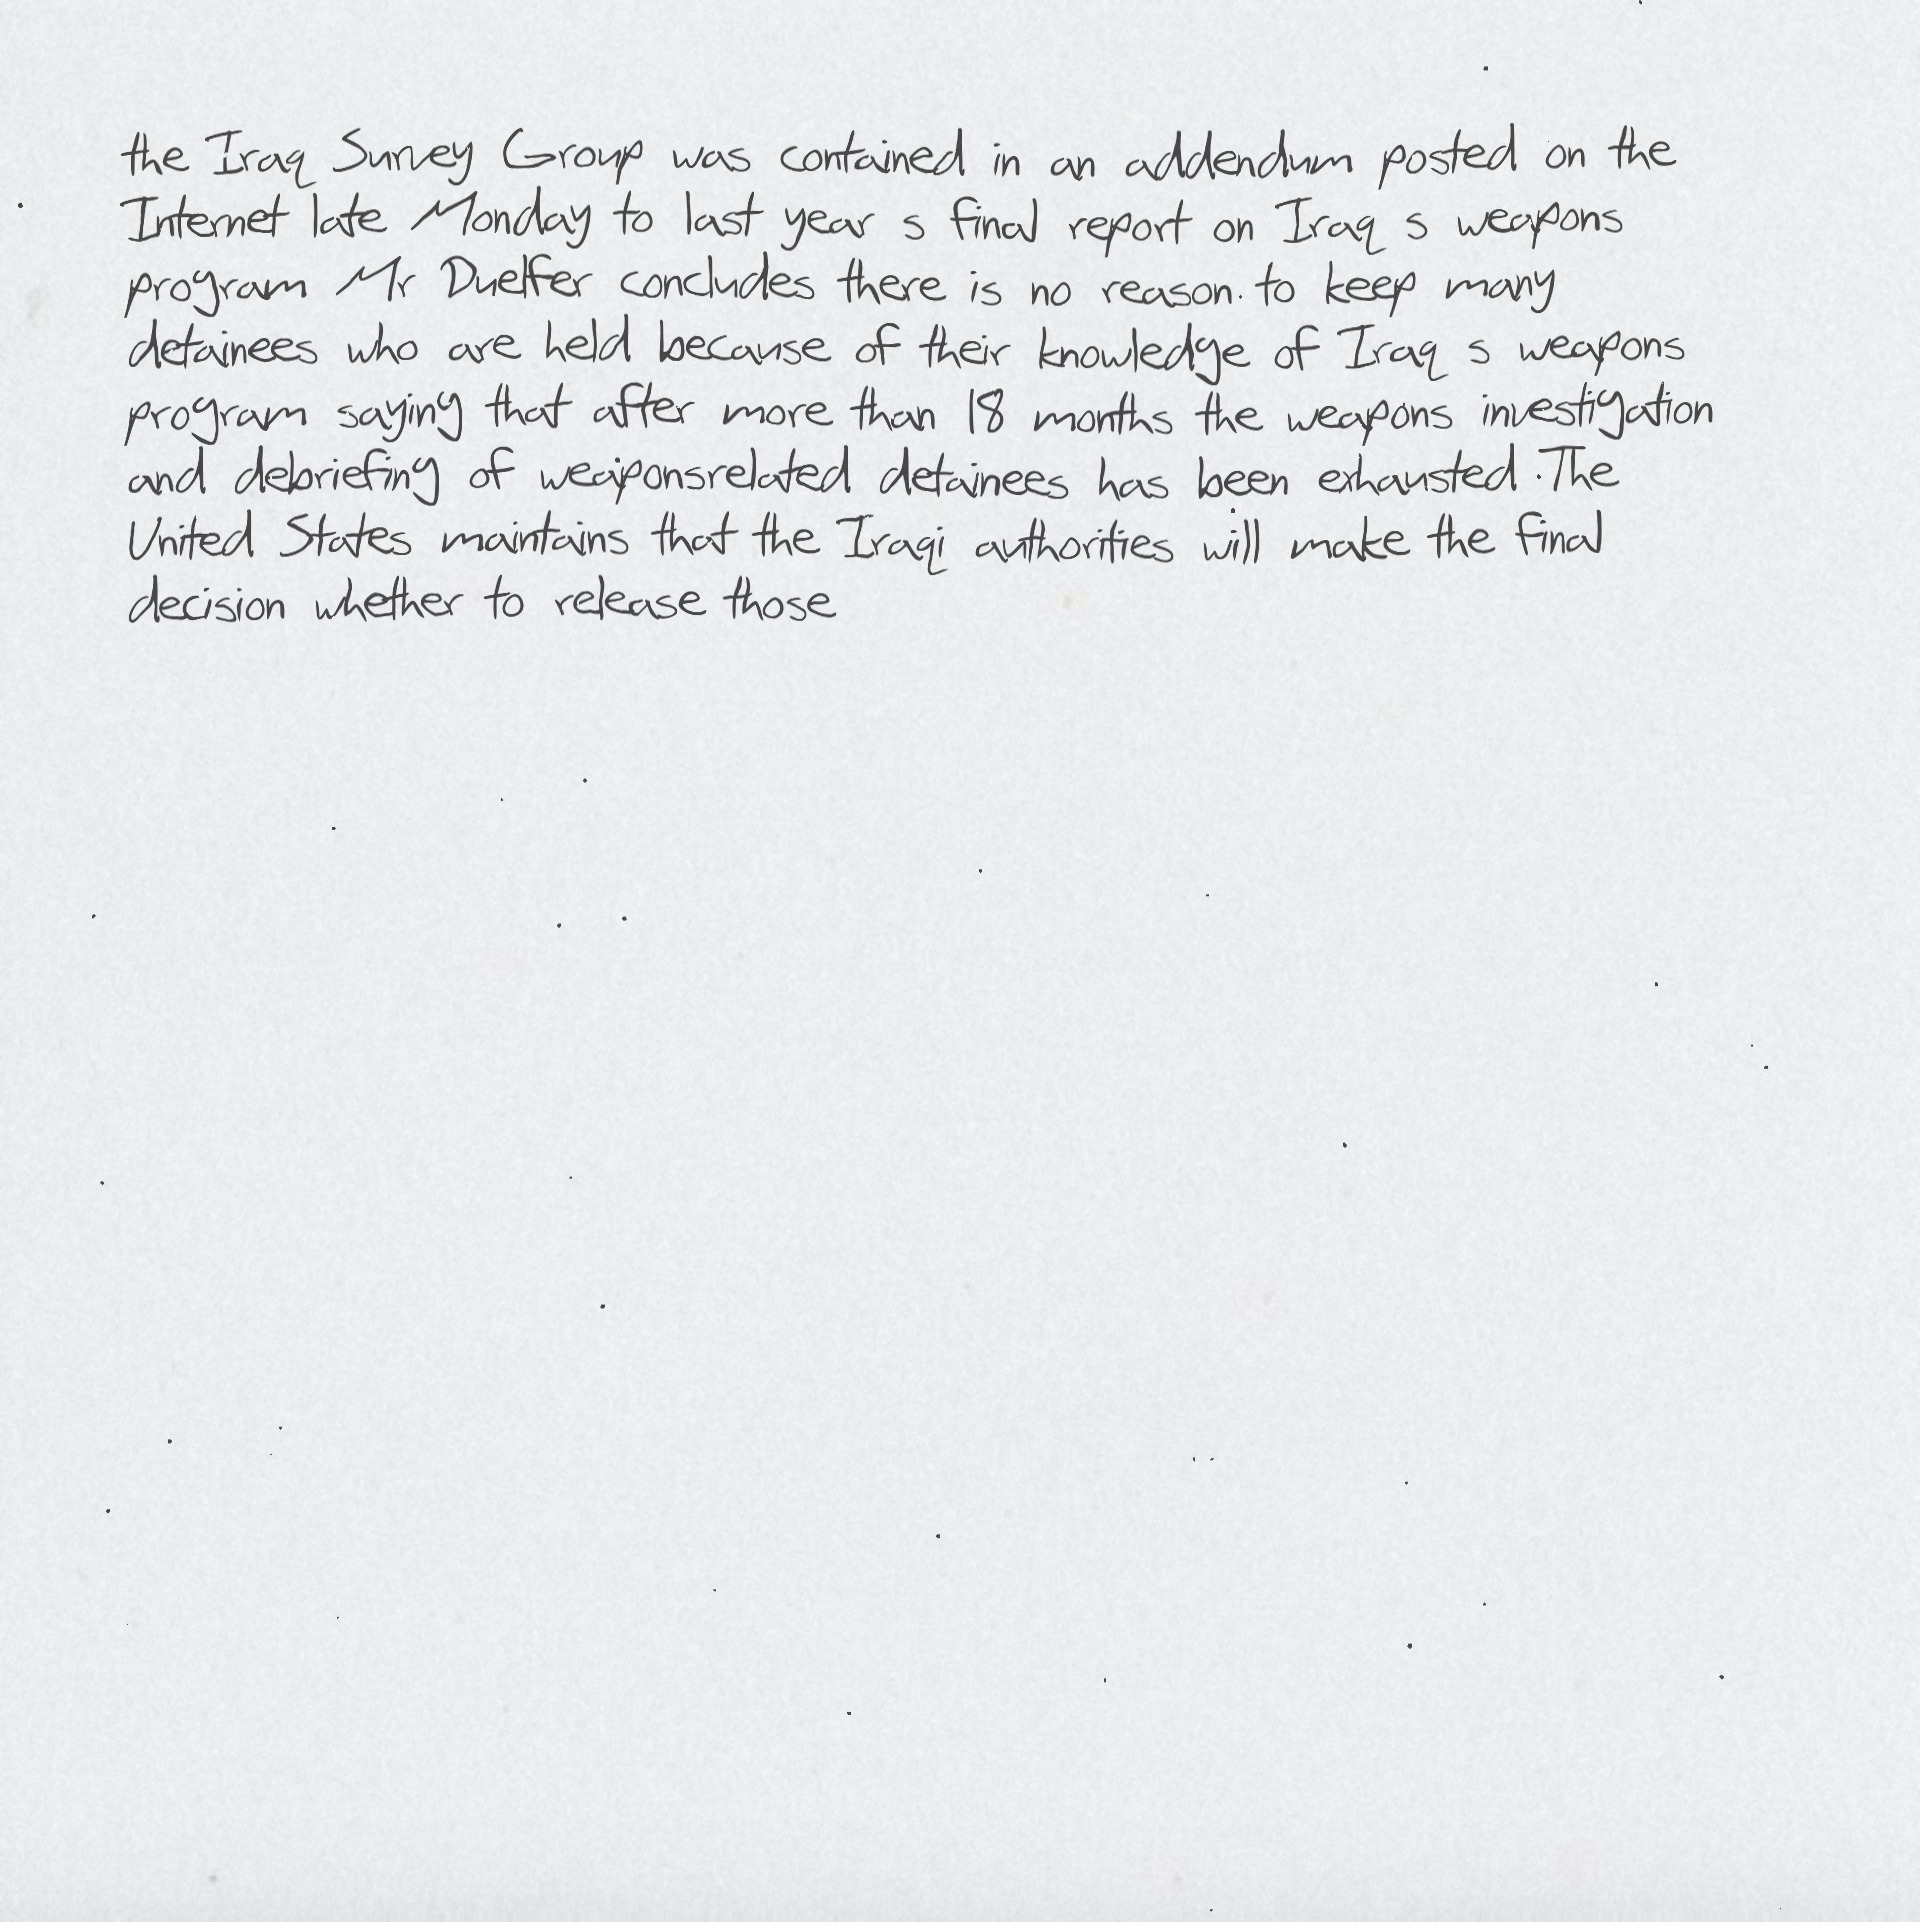 the Iraq Survey Group was contained in an addendum posted on the
Internet late Monday to last year s final report on Iraq s weapons
program Mr Duelfer concludes there is no reason to keep many
detainees who are held because of their knowledge of Iraq s weapons
program saying that after more than 18 months the weapons investigation
and debriefing of weaponsrelated detainees has been exhausted The
United States maintains that the Iraqi authorities will make the final
decision whether to release those